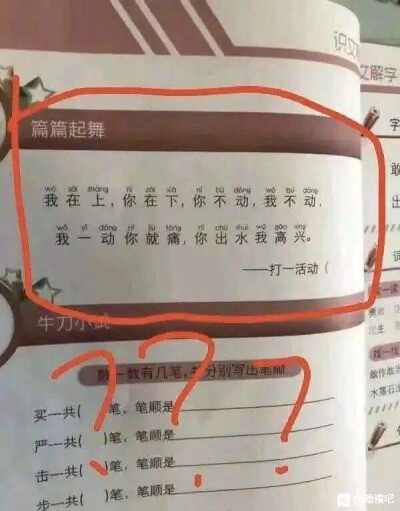 识文
文解字
篇篇起舞
wǒ zài shàng nǐ zài xià nǐ bú dòng wǒ bú dòng
我在上，你在下，你不动，我不动，
wǒ yí dòng nǐ jiù tòng nǐ chū shuǐ wǒ gāo xìng
我一动你就痛，你出水我高兴。
——打一活动（
牛刀小试
数一数有几笔，并分别写出笔顺
买一共( )笔，笔顺是
严一共( )笔，笔顺是
击一共( )笔，笔顺是
步一共( )笔，笔顺是
???
字
敢
出
词
读
勇敢
出生
找一找
敢作敢当
水落石出